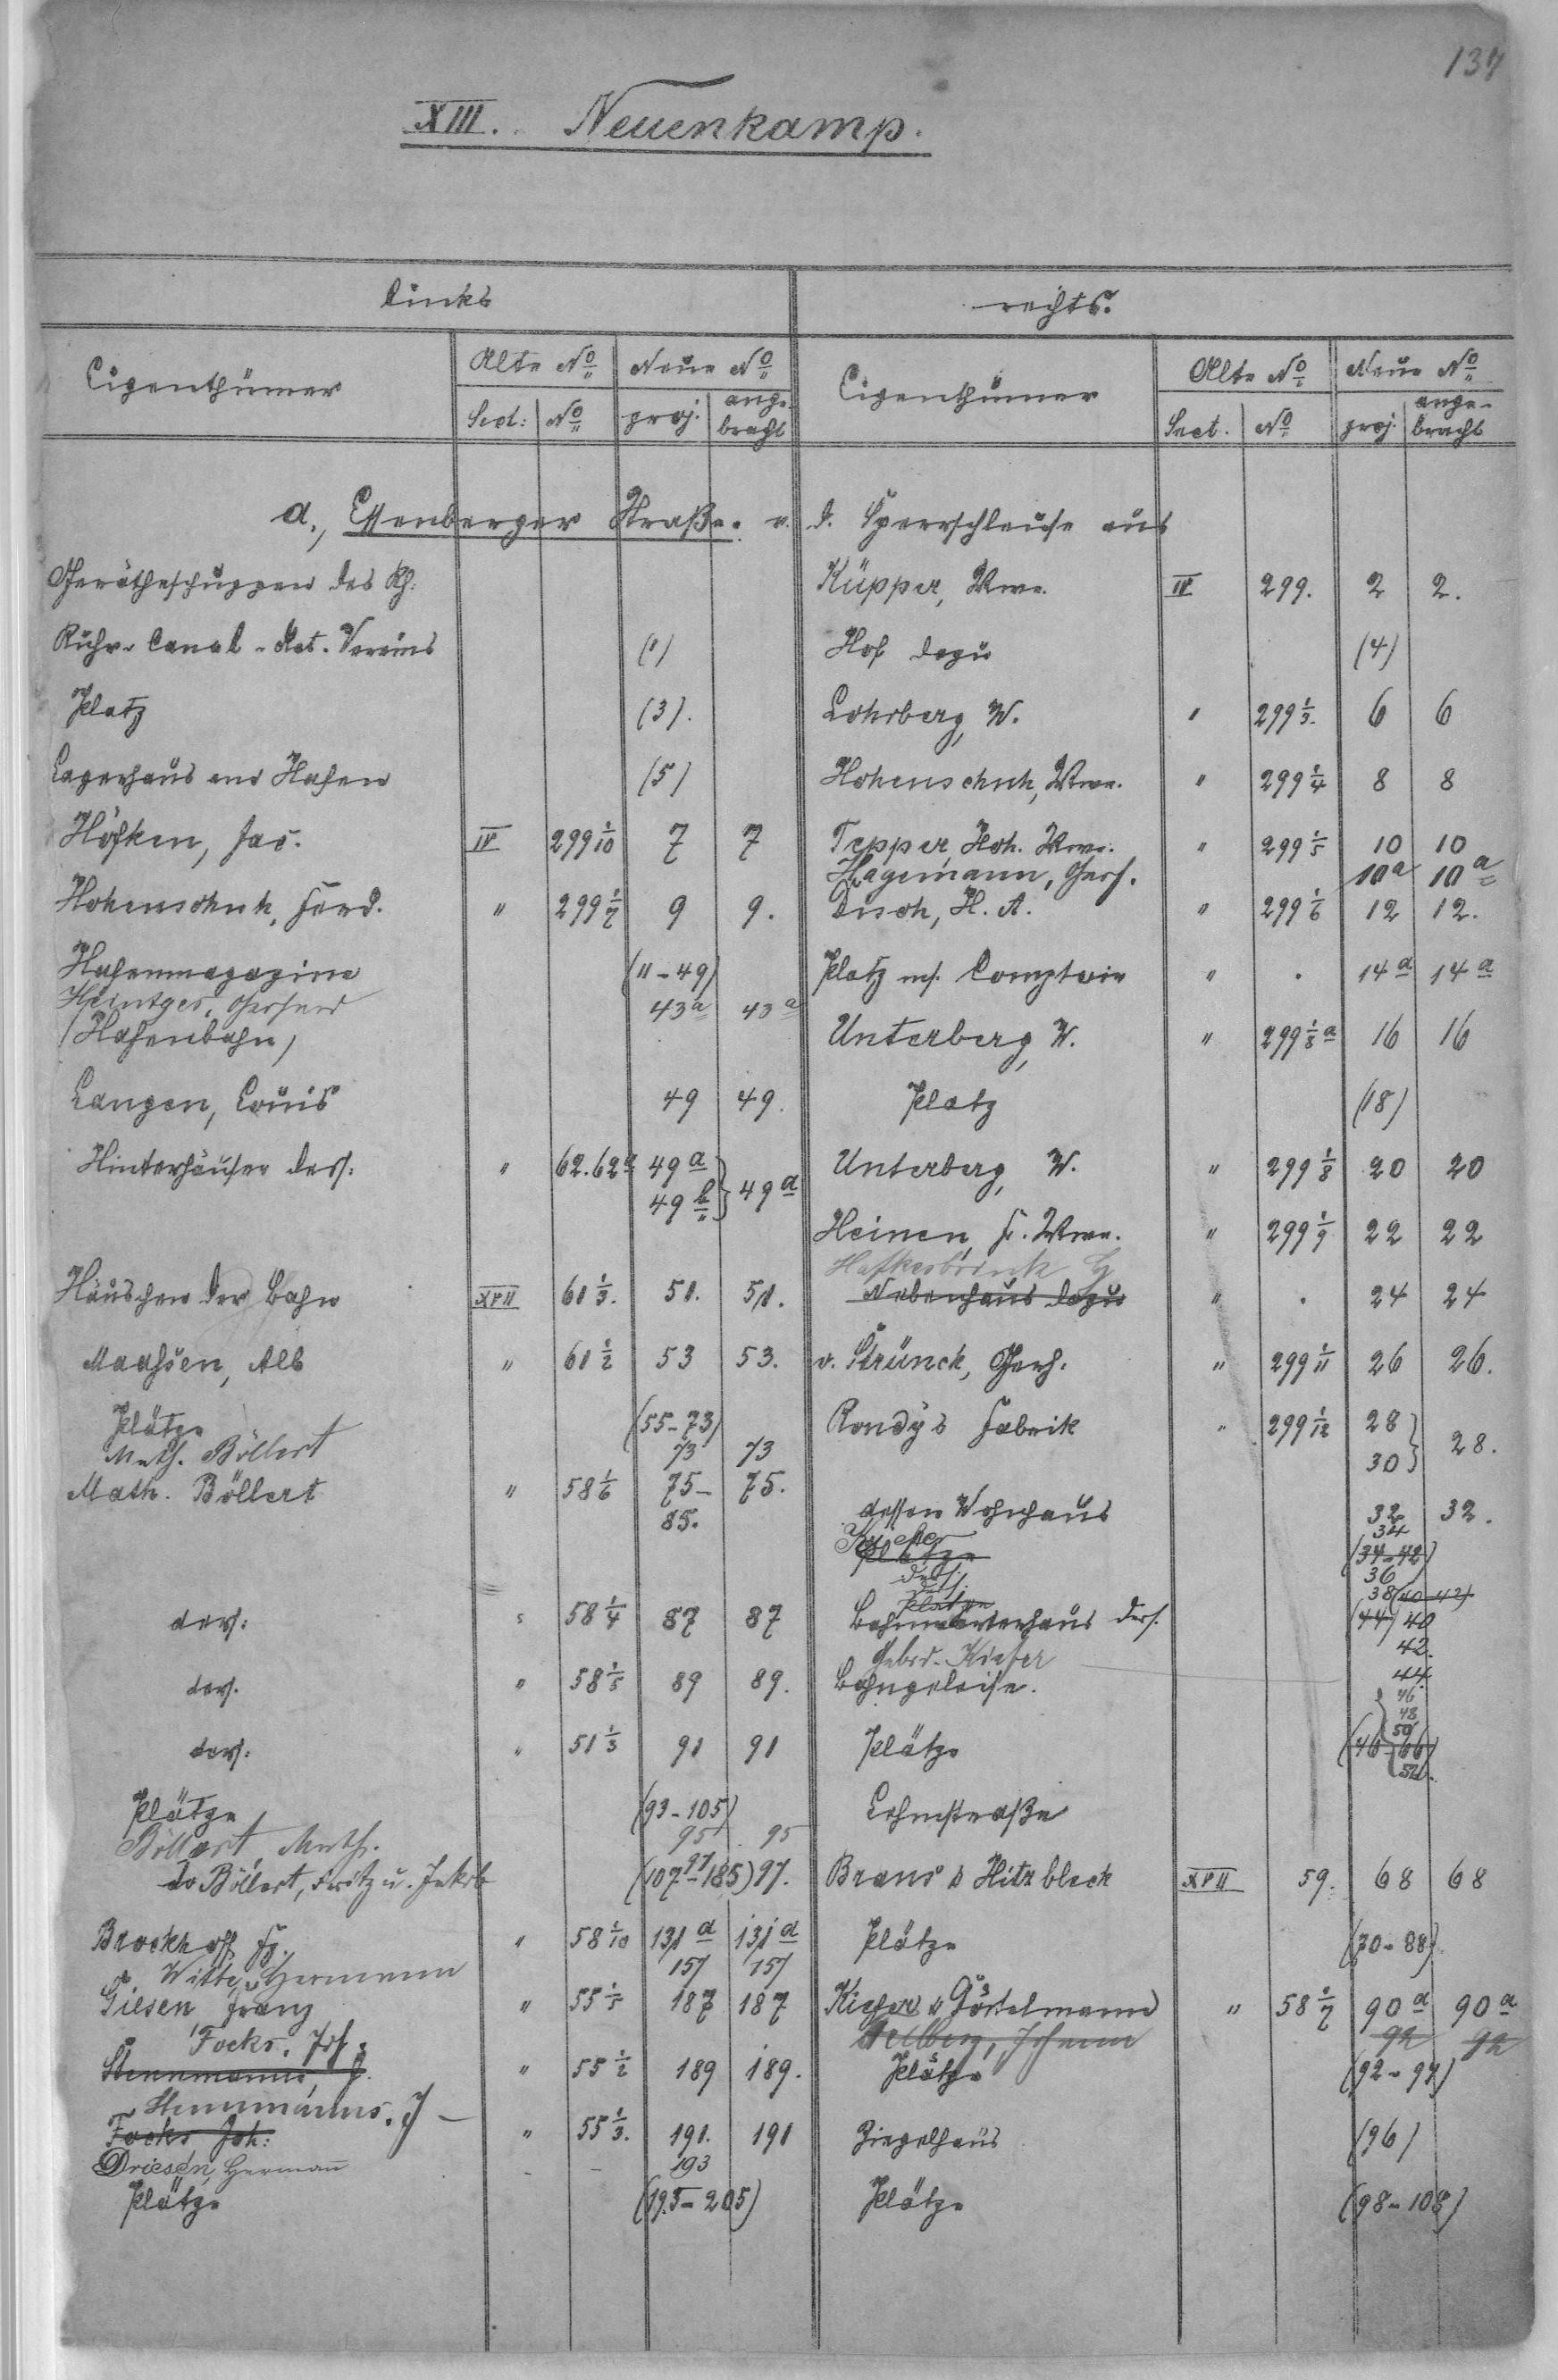 137
XIII. Neuenkamp.
Links rechts.
Eigenthümer Alte No Neue No Eigenthümer Alte No Neue No
Sect: No proj. ange-bracht Sect. No proj. ange-bracht
a., Essenberger Straße. v. d. Sperrschleuse aus
Geräthschuppen des Rh: Küpper, Wwe. IV 299. 2 2.
Ruhr-Canal-Act. Vereins (1) Hof dazu (4)
Platz (3). Lohrberg, W. " 299 1/3. 6 6
Lagerhaus am Hafen (5) Hohenschuh, Wwe. " 299 1/4 8 8
Höfken, Jac. IV 299 1/10 7 7 Tepper, Hch. Wwe. " 299 1/5 10 10
Hagemann, Gerh. 10a 10a
Hohenschuh, Ferd. " 299 1/7 9 9. Disch, H. A. " 299 1/6 12 12.
Hafenmagazine (11-49) Platz m. Comptoir " . 14a 14a
Heintges, Gerhard 43a 43a
(Hafenbahn) Unterberg, W. " 299 1/8 a 16 16
Langen, Louis 49 49. Platz (18)
Hinterhäuser dess: " 62. 62a 49a 49a Unterberg, W. " 299 1/8 20 20
49b
Heinen, F. Wwe. " 299 1/9 22 22
Häuschen der Bahn XVII 61 1/3. 51. 51. Nebenhaus dazu " . 24 24
Maassen, Alb " 61 1/2 53 53. v. Strünck, Gerh. " 299 1/11 26 26.
Plätze (55-73) Rondy's Fabrik " 299 1/12 28 28.
Math. Böllert 73 73 30
Math. Böllert " 58 1/6 75- 75.
85. dessen Wohnhaus 32 32.
34
Plätze (34-42)
dess. 36
dess. 38 (40-42)
Plätze
ders: " 58 1/4 87 87 Bahnwärterhaus ders. (44) 40
42.
Gebrd. Kiefer 44.
ders. " 58 1/5 89 89. Bahngeleise. 46
48
50
ders: " 51 1/3 91 91 Plätze (46-66)
52.
Plätze (93-105) Lehmstraße
Böllert, Math. 95 95
do Böllert, Fritz u. Jakob 97 (107-185) 97. Brans & Hitzbleck XVII 59. 68 68
Brockhoff Fz. " 58 1/10 131a 131a Plätze (70-88)
Witte, Hermann 157 157
Giesen Franz " 55 1/5 187 187 Kiefer & Görtelmann " 58 1/7 90a 90a
Focks, Joh: 92 92
Stennmanns, J. " 55 1/2 189 189. Plätze (92-94)
Stennmanns, J -
Focks Joh: " 55 1/3. 191. 191 Ziegelhaus (96)
Driesen, Hermann 193
Plätze (195-205) Plätze (98-108)